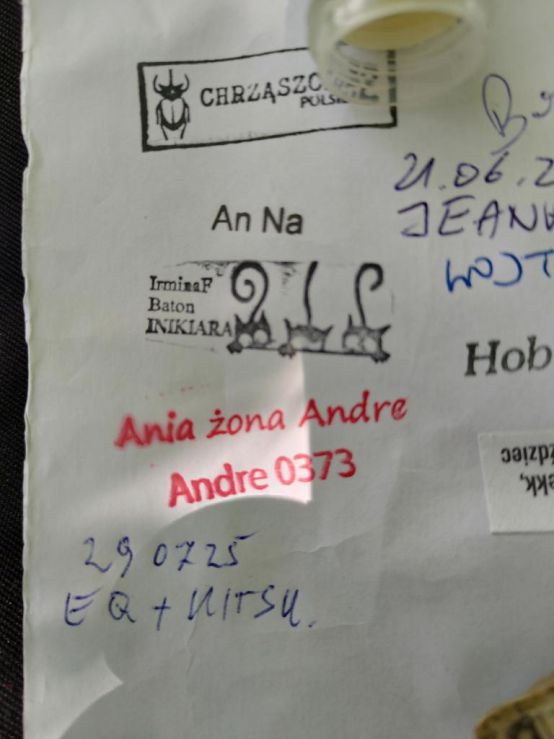 CHRZĄSZC
POLSK
21.06.2
An Na
JEANN
WOJT
IrminaF
Baton
INIKIARA
Hob
Ania żona Andre
Andre 0373
290725
EQ + KITSU.